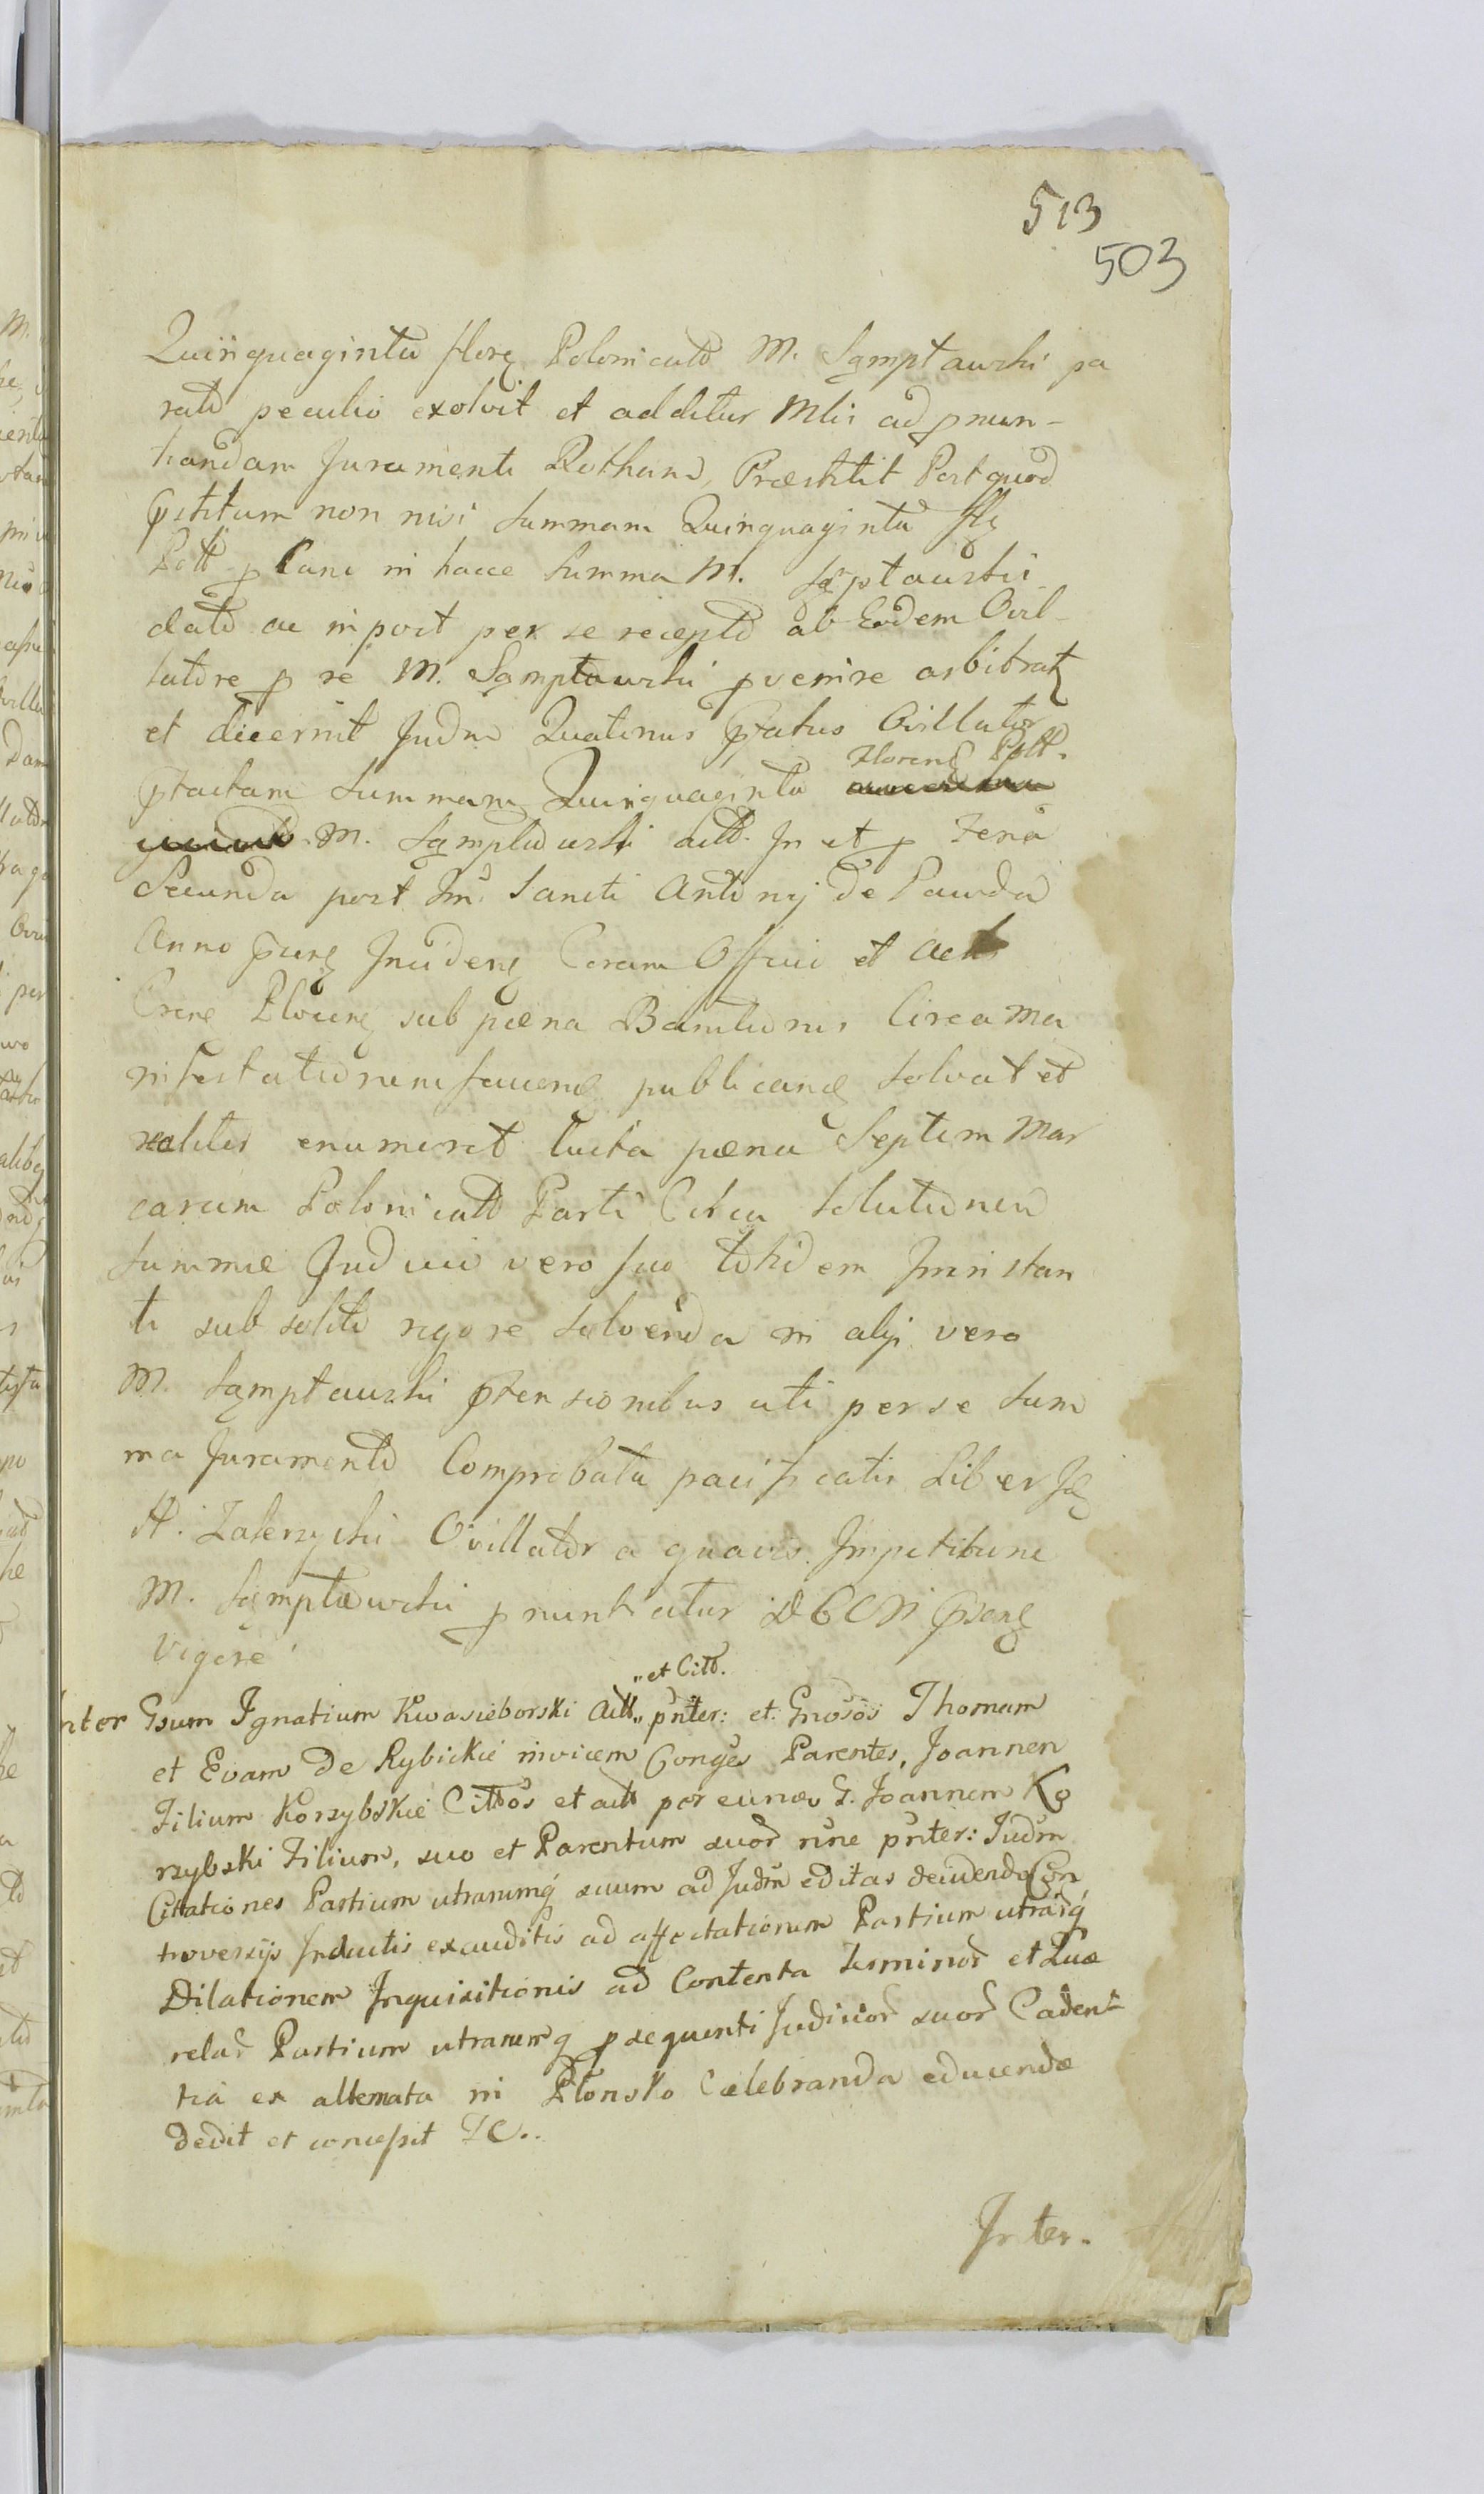 513
503
Quinquaginta floren Polonicalo M. Sąmptawski pa
rato peculio exolvit et additur Mlis ad pnun-
tiandam Juramenti Rotham, Præstitit Post quod
pstitum non nisi Summam Quinquaginta fl
Poll p Cane in hacce Summa M. Sąptawski
dato ac in post per se recepto ab Eodem Ovil-
latore p re M. Sąmptawski pvenire arbitratz
et decernit Judm Quatenus pfatus Ovillator
ptactam Summam Quinquaginta Floren Poll.
M. Sąmptawski actt. In et p Feria
Secunda post Fm Sancti Antonij de Pauda
Anno pung Incideng Coram Officio et Actis
Crene Plocens sub pæna Bannitionis Circa Ma
nifestationem faciend publicand Solvat et
realiter enumeret luita pæna Septem Mar
carum Polonicalo Parti Citra Solutionem
Summæ Judicio vero suo totidem Iminstan
ti sub solito rigore Solvenda in alijs vero
M. Sąmptawski ptensionibus uti per se Sum
ma Juramento Comprobata pacificatis Liber
H. Zaleszycki Ovillator a quavis Impetitione
M. Sąmptawski pnuntiatur D E C N psens
Vigore
"et Citt.
Inter Gsum Ignatium Kwasieborski Actt" pnter: et Gnosos Thomam
et Evam De Rybickie invicem Conges Parentes, Joannen
Filium Korzybskie Cittos et actt per eundv G. Joannem Ko
rzybski Filium, suo et Parentum suor nne pnter: Judm
Cittationes Partium utrarumq suum ad Judm editas decidendo Con
troversijs Inductis exauditis ad affectationem Partium utrarq
Dilationem Inquisitionis ad Contenta Terminor et Quæ
relar Partium utrarumq psequenti Judicior suor Caden
tia ex alternata in Płonsko Cælebranda educendæ
dedit et concessit J C..
Inter.